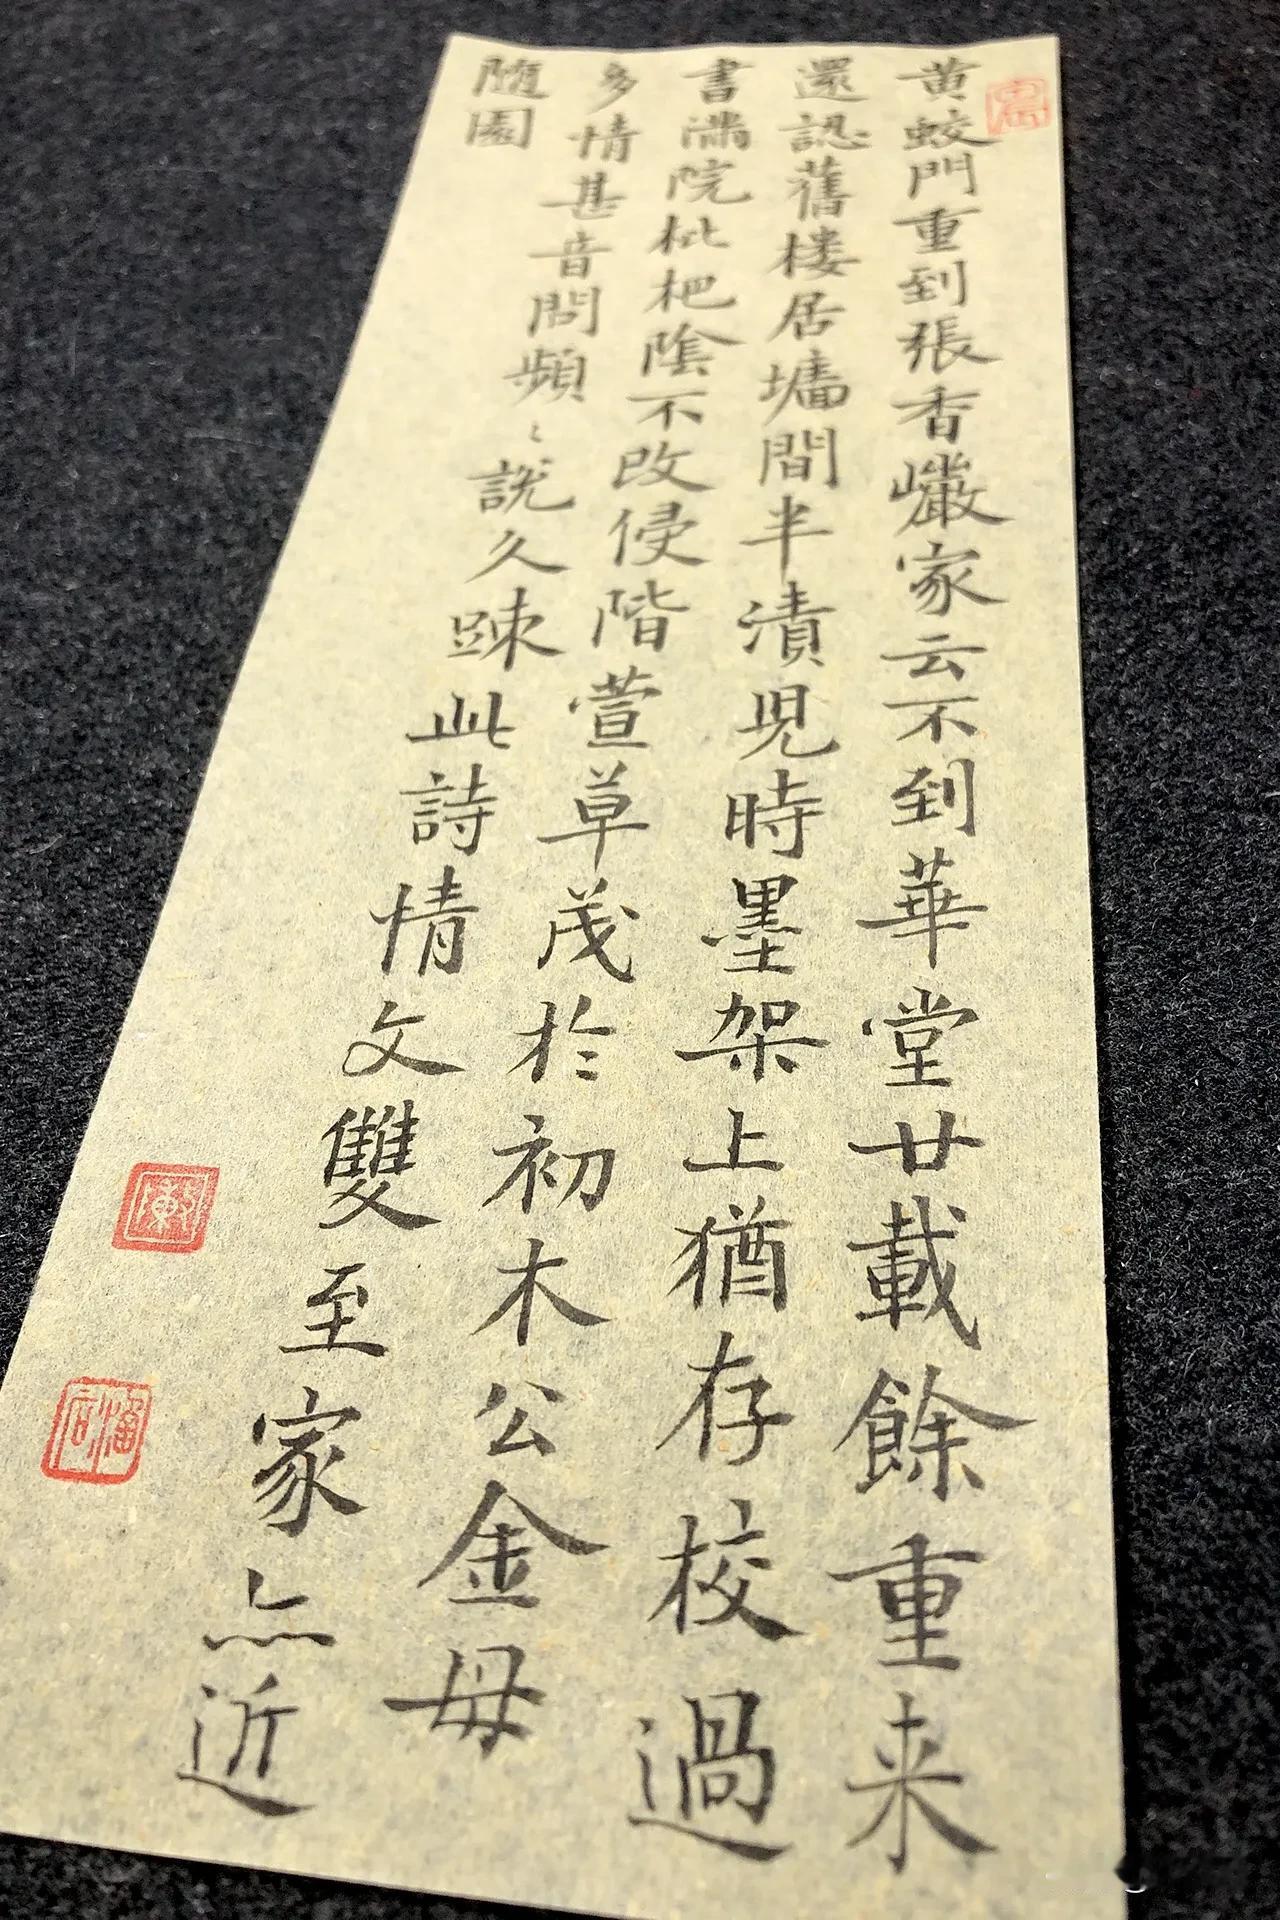 黄蛟門重到張香巗家云不到華堂廿載餘重来
還認舊樓居墻間半漬児時墨架上猶存校過
書滿院枇杷陰不改侵階萱草茂於初木公金母
多情甚音問頻〻說久踈此詩情文雙至家亦近
隨園